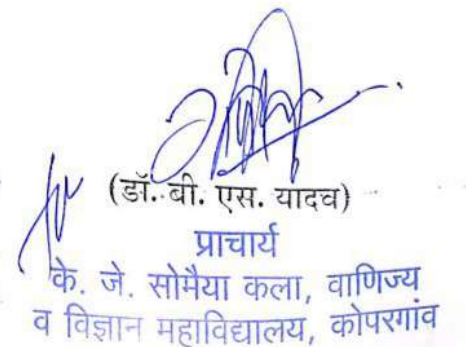 (डॉ. बी. एस. यादव)
प्राचार्य
के. जे. सोमैया कला, वाणिज्य
व विज्ञान महाविद्यालय, कोपरगांव